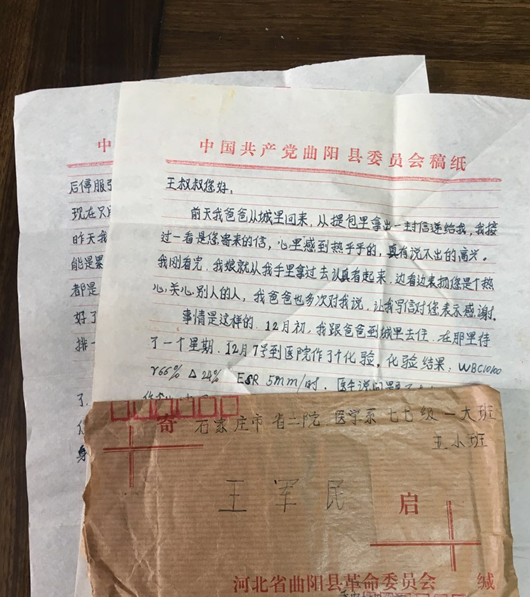 中国共产党曲阳县委员会稿纸
王叔叔您好,
前天我爸爸从城里回来,从提包里拿出一封信送给我,我接
过一看是您寄来的信,心里感到热乎乎的,真有说不出的高兴。
我刚看完,我娘就从我手里拿过去认真看起来,边看边表扬您是个热
心,关心别人的人,我爸爸也多次对我说,让我写信对您表示感谢。
事情是这样的,12月初,我跟爸爸到城里去住,在那里待
了一个星期,12月7号到医院作了个化验,化验结果,WBC
r66% 24% ESR 5mm/时,医生说
中
后停服
现在只
昨天我
能是
都是
好了
排一
了
身
寄 石家庄市省二院 医学系七七级一大班
王小班
王军民 启
河北省曲阳县革命委员会 缄